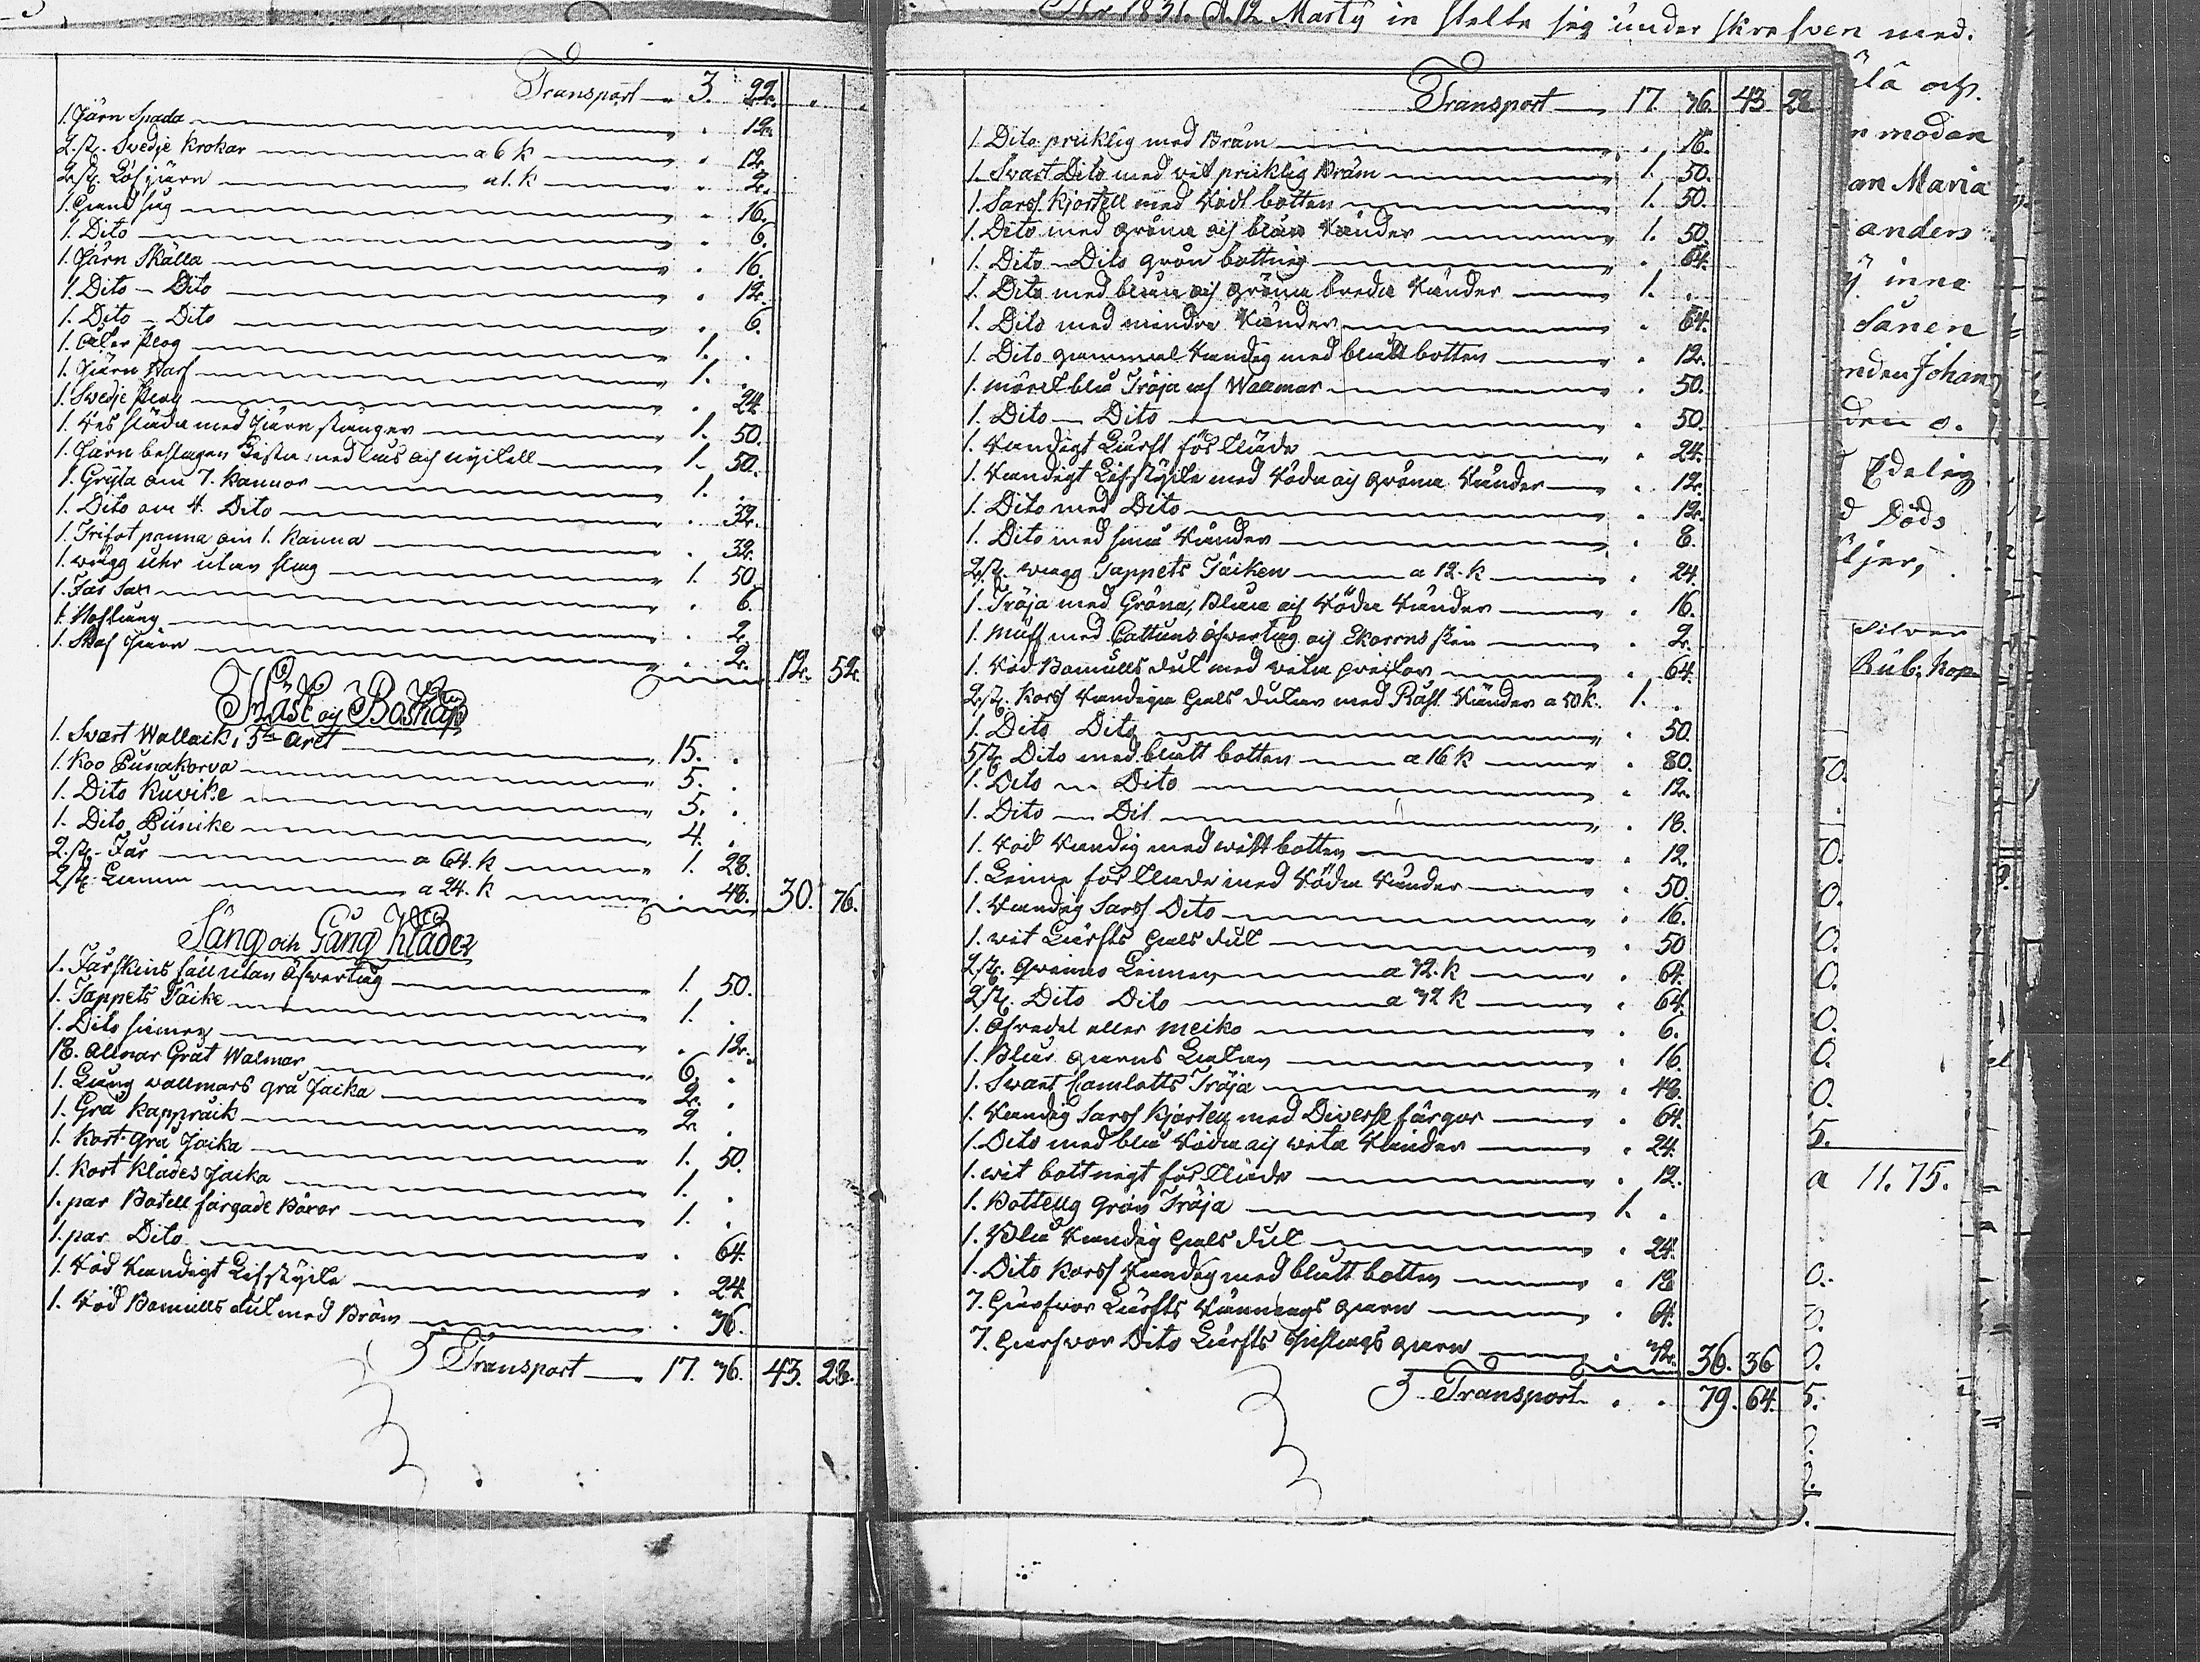 Transport 3. 22.
1. Järn Spada 12.
2. st. Svedje Krokar a 6 k 12.
2. st. Löfjärn a 1. k 2.
1. hug 16.
1. Dito 6.
1. Järn Skälla 16.
1. Dito - Dito 12.
1. Dito - Dito 6.
1. Åker Plog 1. .
1. Järn Harf 1. .
1. Svedje Plog 24
1. Res släda med Järn stänger 1. 50.
1. Järn beslagen Kista med lås och nyckell 1. 50.
1. Gryta om 7. Kannor 1. .
1. Dito om 4. Dito 32.
1. Trifot panna om 1. Kanna 32.
1. wägg uhr utan slag 1. 50.
1. Får Sax 6.
1. Hoftång 2.
1. Skaf Järn 2. 12. 52.
Häst och Boskap
1. Svart Wallack, 5te året 15. .
1. Koo Punakorva 5. .
1. Dito Kuvike 5. .
1. Dito Punike 4. .
2. st. Får a 64. k 1. 28.
2. st. Lamm a 24. k 48. 30. 76.
Säng och Gång Kläder
1. Fårskins fäll utan Öfvertåg 1. 50.
1. Tappets Täcke 1. .
1. Dito sämre 12.
18. Allnar Grat Walmar 6. .
1. Lång wallmars grå Jacka 2. .
1. Grå Kappråck 2 .
1. Kort grå Jacka 1. 50.
1. Kort Klädes Jacka 1. .
1. par Botell färgade Böxor 1. .
1. par Dito 64.
1. Röd Randigt Lifstycke 24.
1. Röd Bomulls duk med Bräm 36.
Transport 17. 36. 43. 28.
Ahr 1831. d. 12 Marty in stelte sig under skrefven med.
Transport 17. 36. 43 28
1. Dito pricklig med Bräm 16.
1. Svart Dito med vit pricklig Bräm 1. 50.
1. Sars Kjortell med Rödt botten 1. 50.
1. Dito med gröna och blåa Ränder 1. 50.
1. Dito - Dito grön bottnig 64.
1. Dito med blåa och gröna breda Ränder 1. .
1. Dito med mindre Ränder 64.
1. Dito gammal Randig med blått botten 12.
1. mörck blå Tröja af Wallmar 50.
1. Dito - Dito 50.
1. Randigt Lärft förkläde 24.
1. Randigt Lifstycke med Röda och gröna Ränder 12.
1. Dito med Dito 12.
1. Dito med små Ränder 8.
2. st. wägg Tappets Täcken a 12. k 24.
1. Tröja med Gröna, Blåa och Röda Ränder 16.
1. Müff med Cattuns öfvertåg och Ekorrns skin 2.
1. Röd Bomulls duk med vita prickar 64.
2. st. Kors Randiga Hals dukar med Ränder a 50 k. 1. .
1. Dito Dito 50.
5 st. Dito med blått botten a 16 k 80.
1. Dito - Dito 12.
1. Dito - Dit 18.
1. Röd Randig med witt botten 12.
1. Linne förkläde med Röda Ränder 50.
1. Randig Sars Dito 16.
1. wit Lärfts Hals duk 50
2. st. Qvinno Linnen a 32. k 64.
2. st. Dito Dito a 32 k 64.
1. Öfvedel eller Meiko 6.
1. Blår garns Lakan 16.
1. Svart Camlotts Tröja 48.
1. Randig Sars Kjortell med Diverse färgor 64.
1. Dito med blå Röda och wita Ränder 24.
1. wit bottnigt förkläde 12.
1. Bottellg grön Tröja 1. .
1. Blå Randig Hals duk 24.
1. Dito Kors Randig med blått botten 18
7. Härfvor Lärfts Rännings garn 64.
7. Härfvor Dito Lärfts Inslags garn 32. 36. 36
Transport . . 79. 64.
och.
modan
an Maria
anders
inne
Sanen
Johan
den
Edelig
Döds
Silver
Rub. Kop
a 11. 75.